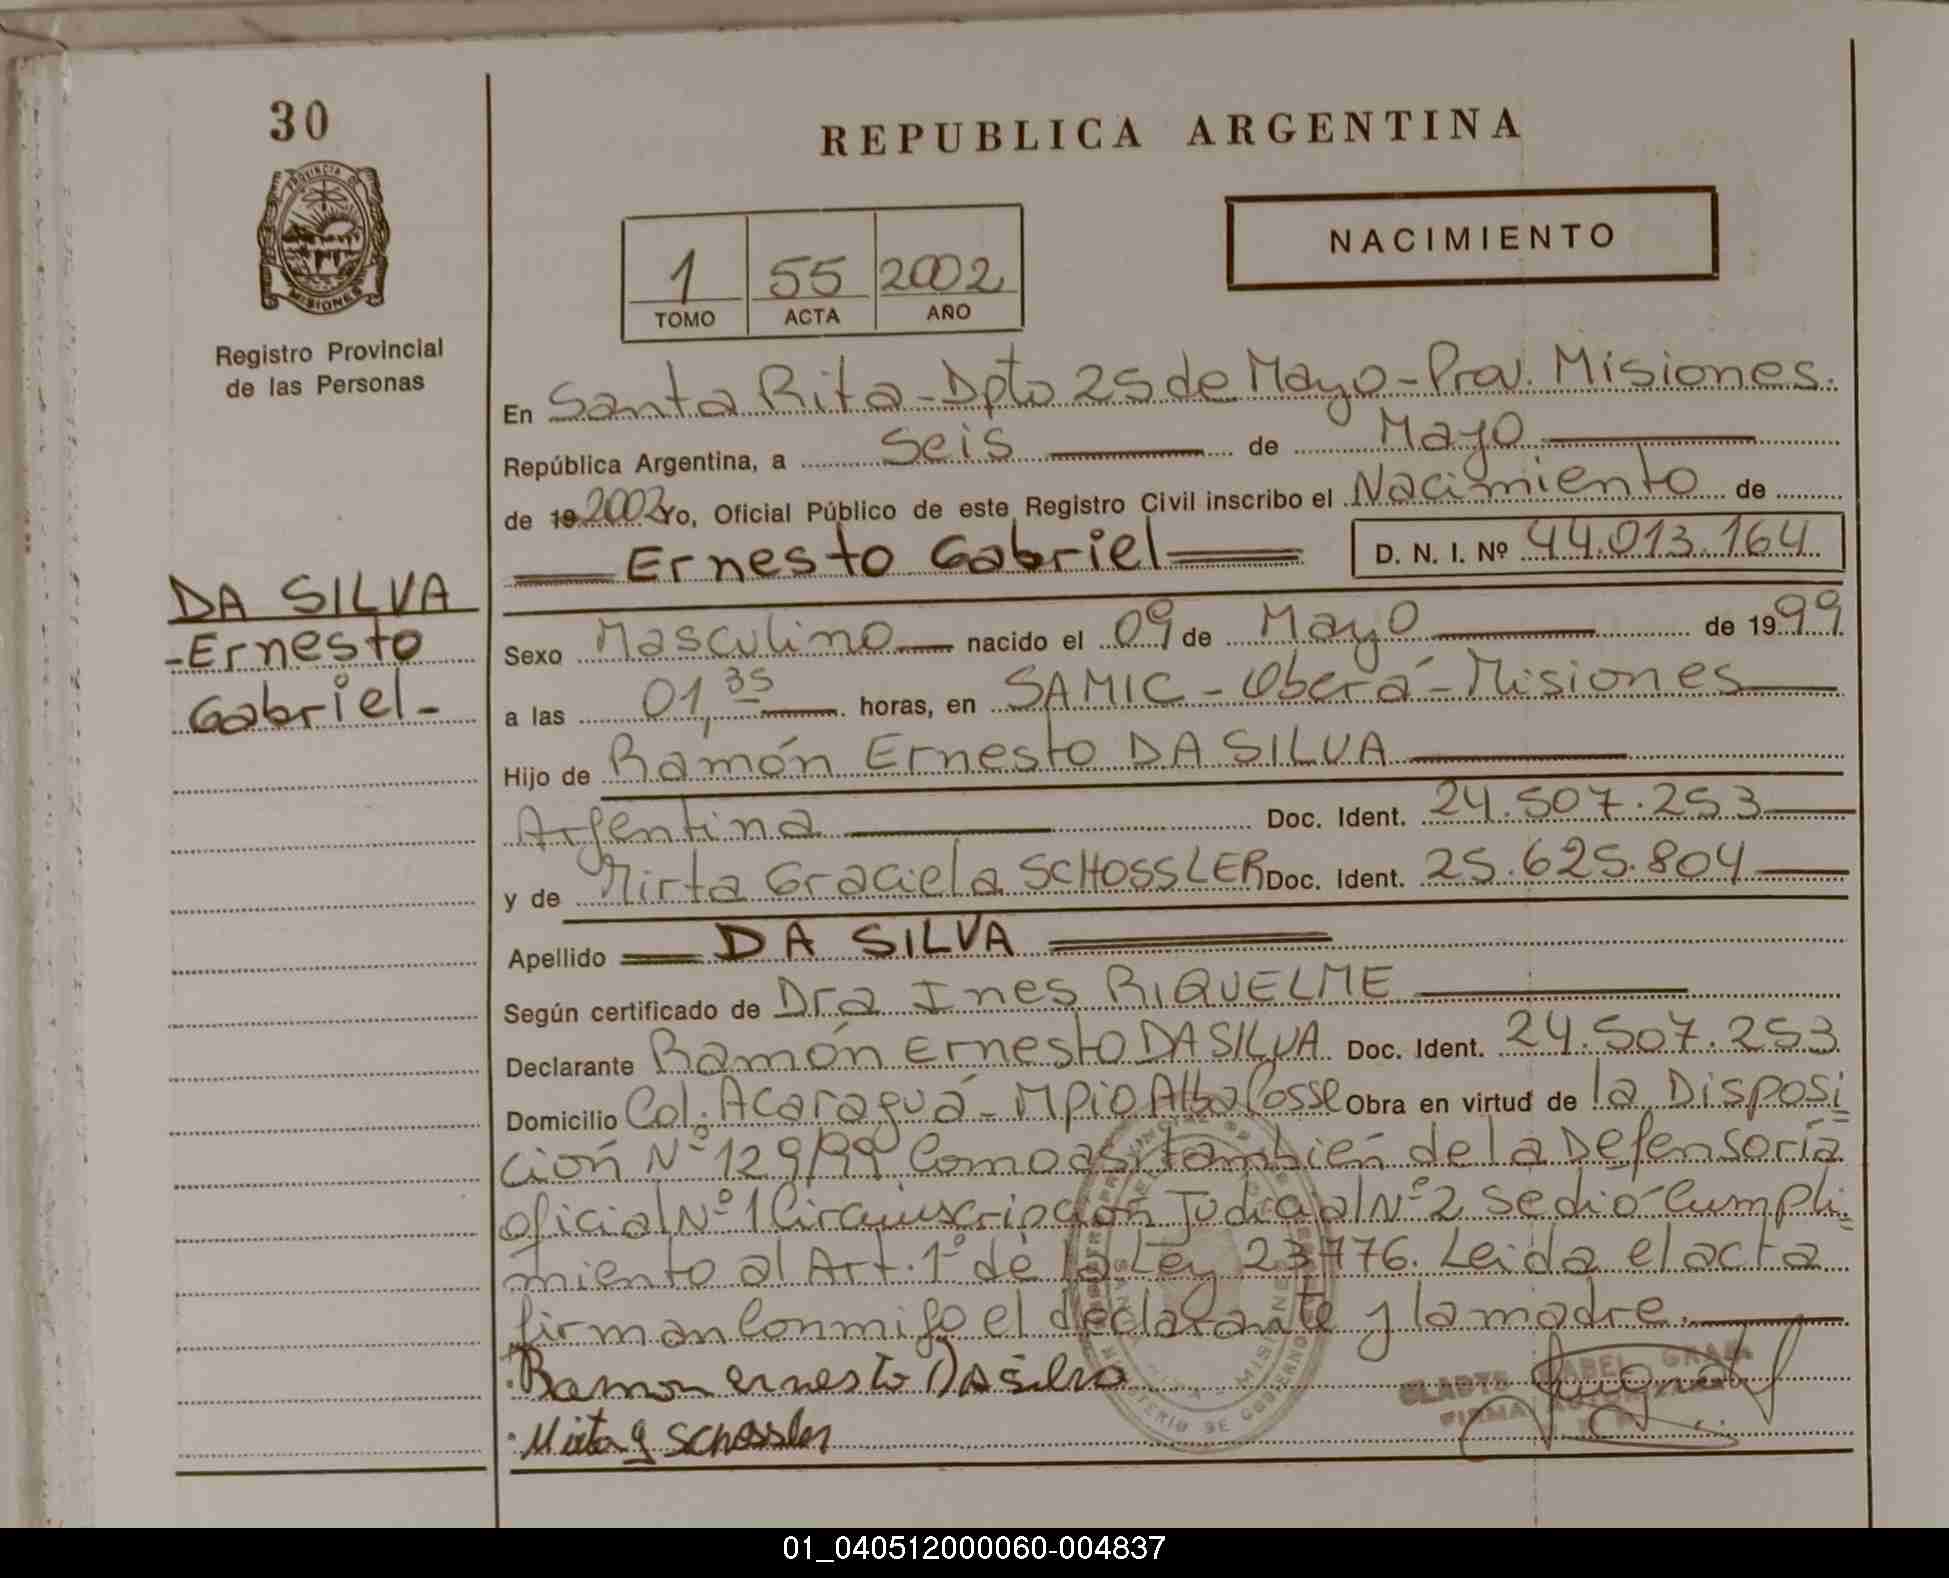 30
REPUBLICA ARGENTINA
PROVINCIA DE
MISIONES
NACIMIENTO
1 55 2002
TOMO ACTA AÑO
Registro Provincial
de las Personas
En Santa Rita - Dpto 25 de Mayo - Prov. Misiones.
República Argentina, a Seis de Mayo
de 19 2002 Yo, Oficial Público de este Registro Civil inscribo el Nacimiento de
Ernesto Gabriel D. N. I. Nº 44.013.164
DA SILVA
-Ernesto
Gabriel-
Sexo Masculino nacido el 09 de Mayo de 1999
a las 01,35 horas, en SAMIC - Oberá - Misiones
Hijo de Ramón Ernesto DA SILVA
Argentina Doc. Ident. 24.507.253
y de Mirta Graciela SCHOSSLER Doc. Ident. 25.625.804
Apellido DA SILVA
Según certificado de Dra Ines RIQUELME
Declarante Ramón Ernesto DA SILVA Doc. Ident. 24.507.253
Domicilio Col. Acaraguá - Mpio Alba Posse Obra en virtud de la Disposi
ción Nº 129/99 Como asi también de la Defensoría
oficial Nº 1 Circunscripción Judicial Nº 2 se dió Cumpli-
miento al Art. 1º de la Ley 23776. Leida el acta
firman Conmigo el declarante y la madre.
Ramon ernesto DA silva
Mirta g schossler
FIRMA
01_040512000060-004837